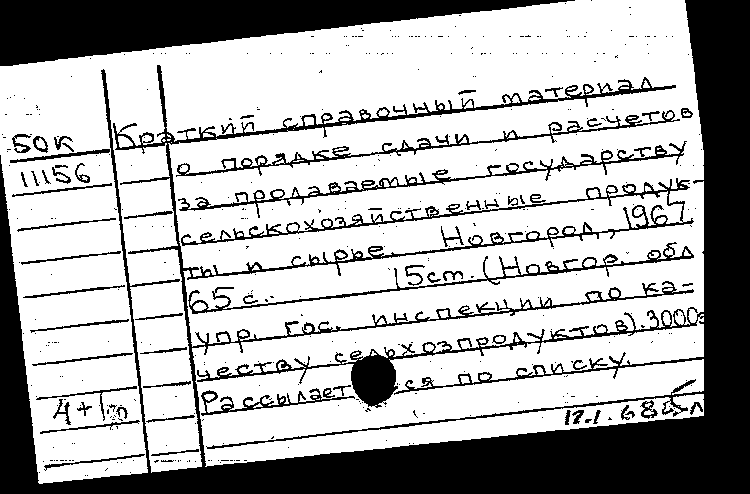 50К Краткий справочный материал
11156 о порядке сдачи и расчетов
за продаваемые государству
сельскохозяйственные продук-
ты и сырье. Новгород, 1967.
65 с. 15 ст. (Новгор. обл.
упр. гос. инспекции по ка-
честву сельхозпродуктов). 3000э
Рассылается по списку.
4+1
12.1.68